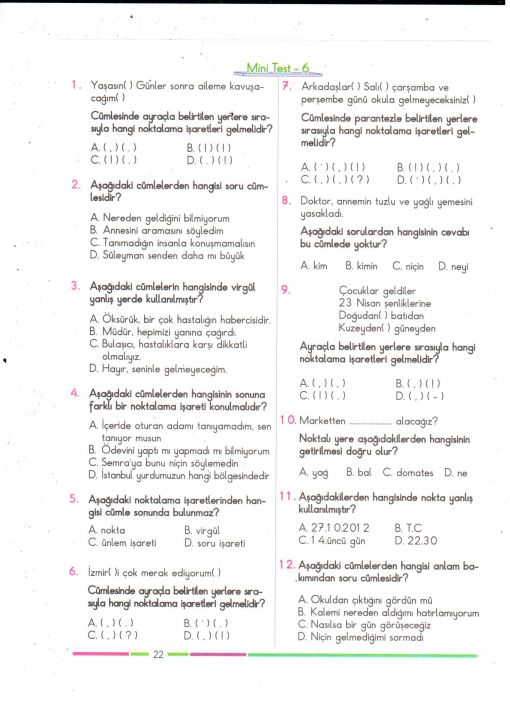 Mini Test - 6
1. Yaşasın( ) Günler sonra aileme kavuşa-
cağım( )
Cümlesinde ayraçla belirtilen yerlere sıra-
sıyla hangi noktalama işaretleri gelmelidir?
A. ( , ) ( . ) B. ( ! ) ( ! )
C. ( ! ) ( . ) D. ( . ) ( ! )
2. Aşağıdaki cümlelerden hangisi soru cüm-
lesidir?
A. Nereden geldiğini bilmiyorum
B. Annesini aramasını söyledim
C. Tanımadığın insanla konuşmamalısın
D. Süleyman senden daha mı büyük
3. Aşağıdaki cümlelerin hangisinde virgül
yanlış yerde kullanılmıştır?
A. Öksürük, bir çok hastalığın habercisidir.
B. Müdür, hepimizi yanına çağırdı.
C. Bulaşıcı, hastalıklara karşı dikkatli
olmalıyız.
D. Hayır, seninle gelmeyeceğim.
4. Aşağıdaki cümlelerden hangisinin sonuna
farklı bir noktalama işareti konulmalıdır?
A. İçeride oturan adamı tanıyamadım, sen
tanıyor musun
B. Ödevini yaptı mı yapmadı mı bilmiyorum
C. Semra'ya bunu niçin söylemedin
D. İstanbul yurdumuzun hangi bölgesindedir
5. Aşağıdaki noktalama işaretlerinden han-
gisi cümle sonunda bulunmaz?
A. nokta B. virgül
C. ünlem işareti D. soru işareti
6. İzmir( )i çok merak ediyorum( )
Cümlesinde ayraçla belirtilen yerlere sıra-
sıyla hangi noktalama işaretleri gelmelidir?
A. ( , ) ( . ) B. ( ' ) ( . )
C. ( , ) ( ? ) D. ( , ) ( ! )
22
7. Arkadaşlar( ) Salı( ) çarşamba ve
perşembe günü okula gelmeyeceksiniz( )
Cümlesinde parantezle belirtilen yerlere
sırasıyla hangi noktalama işaretleri gel-
melidir?
A. ( ' ) ( , ) ( ! ) B. ( ! ) ( , ) ( . )
C. ( , ) ( , ) ( ? ) D. ( ' ) ( , ) ( . )
8. Doktor, annemin tuzlu ve yağlı yemesini
yasakladı.
Aşağıdaki sorulardan hangisinin cevabı
bu cümlede yoktur?
A. kim B. kimin C. niçin D. neyi
9. Çocuklar geldiler
23 Nisan şenliklerine
Doğudan( ) batıdan
Kuzeyden( ) güneyden
Ayraçla belirtilen yerlere sırasıyla hangi
noktalama işaretleri gelmelidir?
A. ( , ) ( . ) B. ( , ) ( ! )
C. ( ! ) ( . ) D. ( , ) ( - )
10. Marketten .................... alacağız?
Noktalı yere aşağıdakilerden hangisinin
getirilmesi doğru olur?
A. yağ B. bal C. domates D. ne
11. Aşağıdakilerden hangisinde nokta yanlış
kullanılmıştır?
A. 27.10.2012 B. T.C
C. 14.üncü gün D. 22.30
12. Aşağıdaki cümlelerden hangisi anlam ba-
kımından soru cümlesidir?
A. Okuldan çıktığını gördün mü
B. Kalemi nereden aldığımı hatırlamıyorum
C. Nasılsa bir gün görüşeceğiz
D. Niçin gelmediğimi sormadı